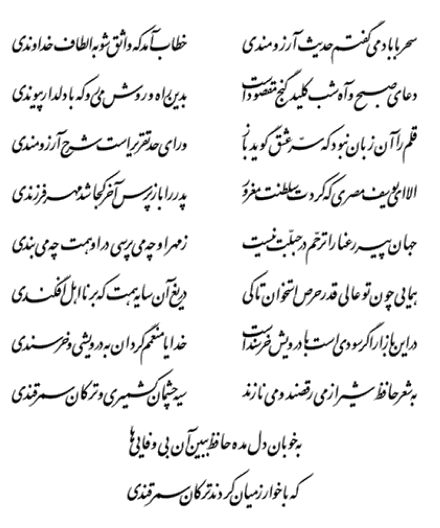 سحر با باد می‌گفتم حدیث آرزومندی خطاب آمد که واثق شو به الطاف خداوندی
دعای صبح و آه شب کلید گنج مقصود است بدین راه و روش می‌رو که با دلدار پیوندی
قلم را آن زبان نبود که سرّ عشق گوید باز ورای حد تقریر است شرح آرزومندی
الا ای یوسف مصری که کردت سلطنت مغرور پدر را بازپرس آخر کجا شد مهر فرزندی
جهان پیر رعنا را ترحّم در جبلّت نیست ز مهر او چه می‌پرسی در او همت چه می‌بندی
همایی چون تو عالی قدر حرص استخوان تا کی دریغ آن سایه همت که بر نااهل افکندی
در این بازار اگر سودی است با درویش خرسند است خدایا منعمم گردان به درویشی و خرسندی
به شعر حافظ شیراز می‌رقصند و می‌نازند سیه چشمان کشمیری و ترکان سمرقندی
به خوبان دل مده حافظ ببین آن بی‌وفایی‌ها
که با خوارزمیان کردند ترکان سمرقندی